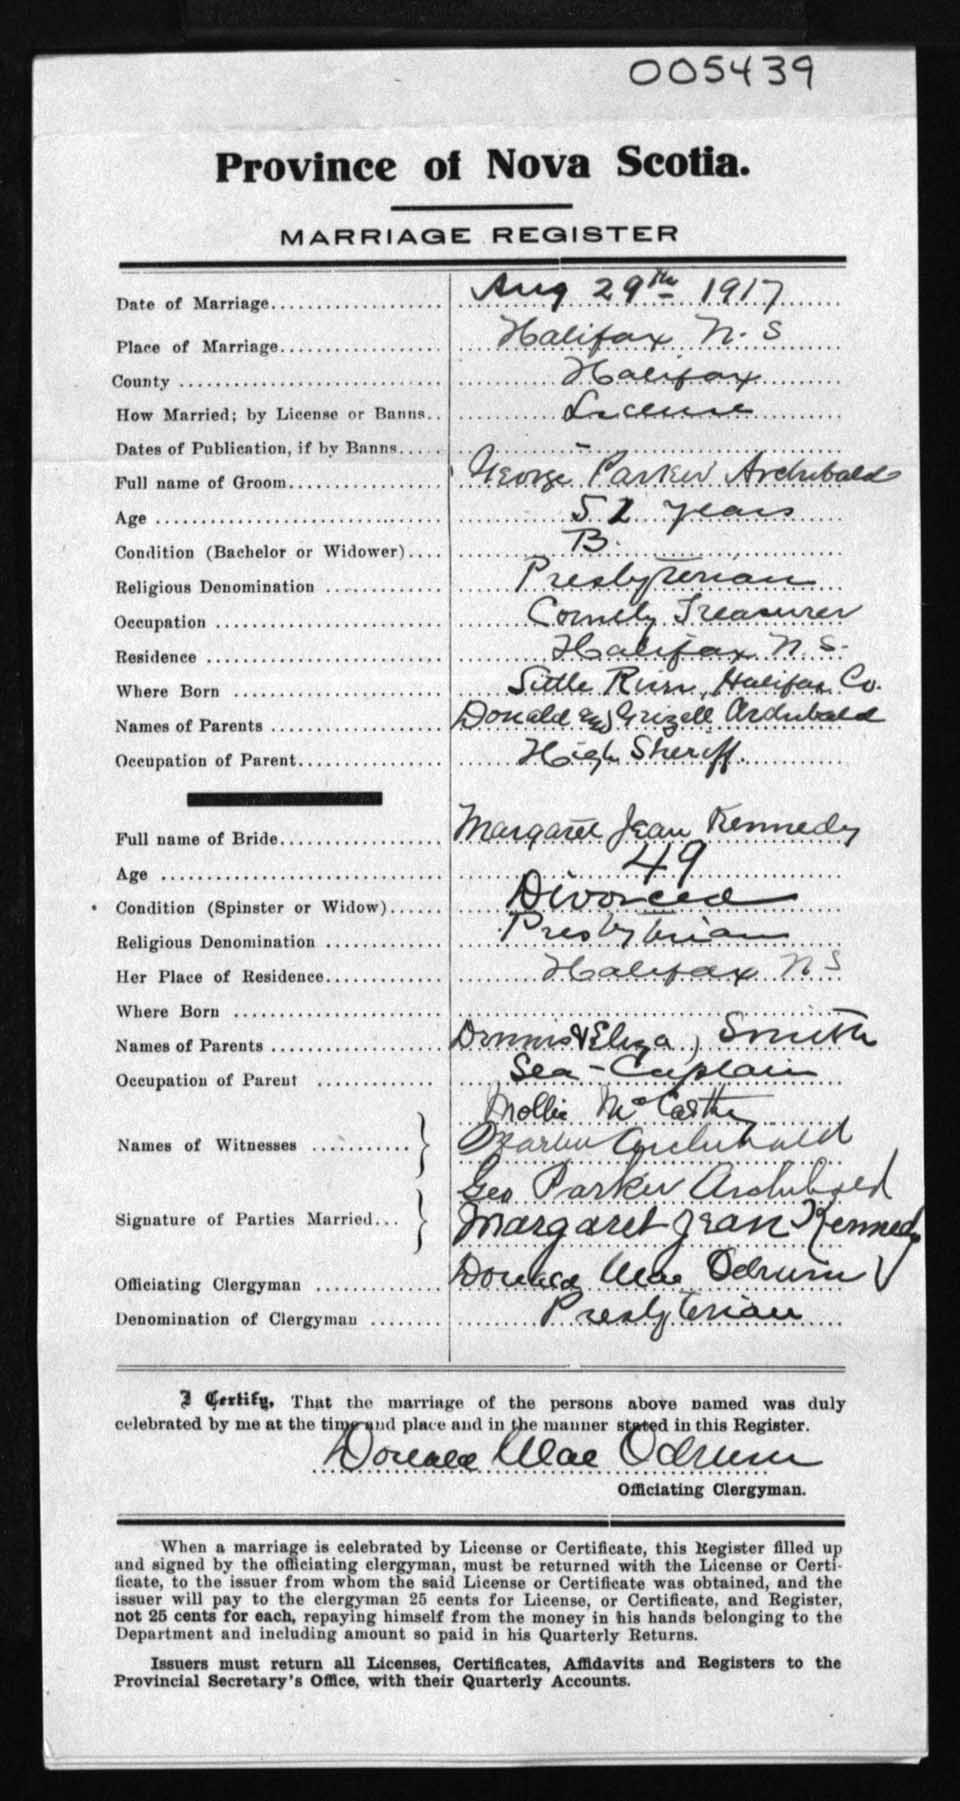 005439
Province of Nova Scotia.
MARRIAGE REGISTER
Date of Marriage Aug 29th 1917
Place of Marriage Halifax N. S
County Halifax
How Married; by License or Banns License
Dates of Publication, if by Banns -
Full name of Groom George Parker Archibald
Age 52 years
Condition (Bachelor or Widower) B.
Religious Denomination Presbyterian
Occupation County Treasurer
Residence Halifax N. S.
Where Born Little River, Halifax Co.
Names of Parents Donald and Grizell Archibald
Occupation of Parent High Sheriff.
Full name of Bride Margaret Jean Kennedy
Age 49
Condition (Spinster or Widow) Divorced
Religious Denomination Presbyterian
Her Place of Residence Halifax N S
Where Born
Names of Parents Dennis & Eliza, Smith
Occupation of Parent Sea-Captain
Mollie McCarthy
Names of Witnesses Archibald
Geo Parker Archibald
Signature of Parties Married Margaret Jean Kennedy
Officiating Clergyman Donald Mac Odrum
Denomination of Clergyman Presbyterian
I Certify, That the marriage of the persons above named was duly
celebrated by me at the time and place and in the manner stated in this Register.
Donald Mac Odrum
Officiating Clergyman.
When a marriage is celebrated by License or Certificate, this Register filled up
and signed by the officiating clergyman, must be returned with the License or Certi-
ficate, to the issuer from whom the said License or Certificate was obtained, and the
issuer will pay to the clergyman 25 cents for License, or Certificate, and Register,
not 25 cents for each, repaying himself from the money in his hands belonging to the
Department and including amount so paid in his Quarterly Returns.
Issuers must return all Licenses, Certificates, Affidavits and Registers to the
Provincial Secretary's Office, with their Quarterly Accounts.